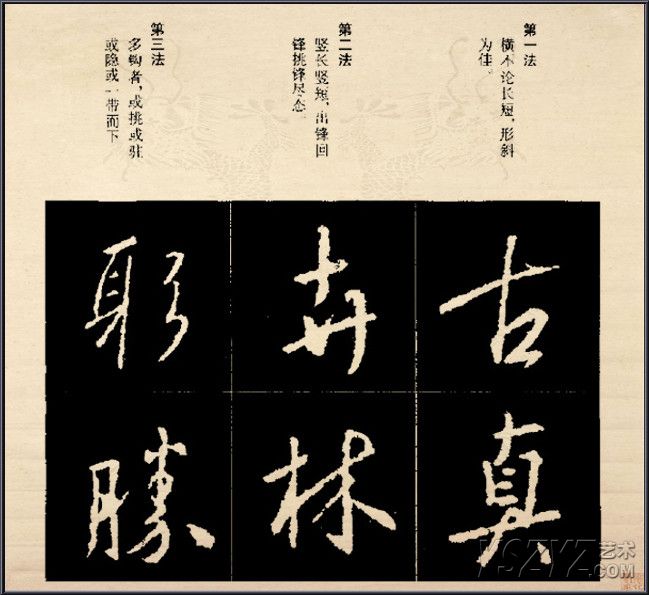 第一法
横不论长短，形斜
为佳。
第二法
竖长竖短，出锋回
锋挑锋尽态。
第三法
多钩者，或挑或驻
或隐或一带而下
古
真
卉
林
勝
YSZYZ艺术
.COM